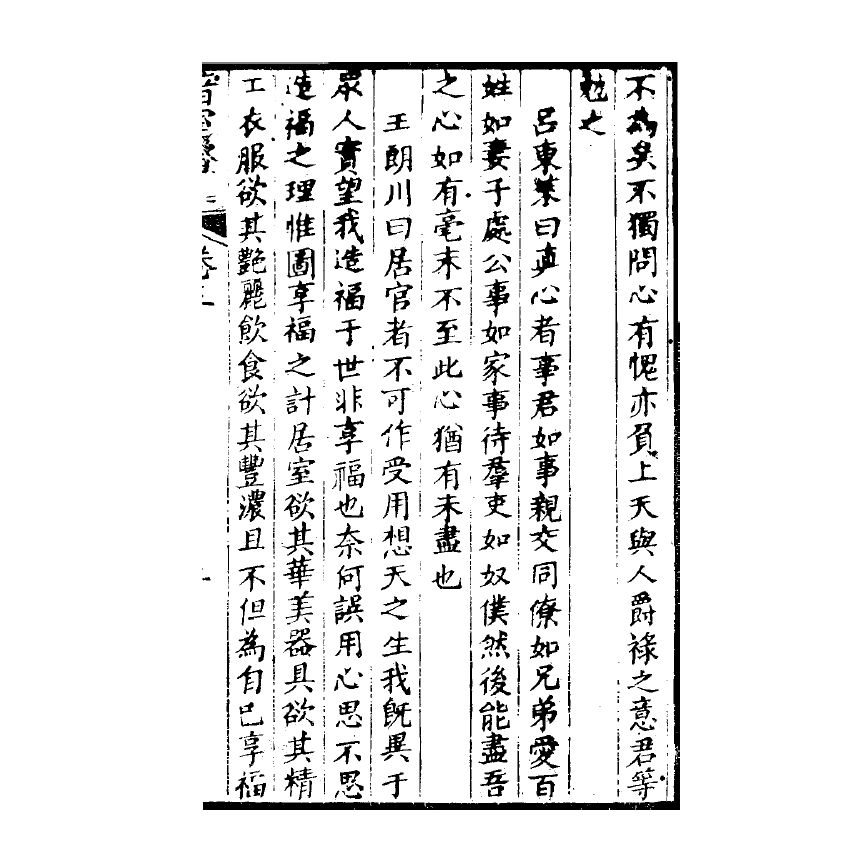 不為矣不獨問心有愧亦負上天與人爵祿之意君等
勉之
呂東萊曰真心者事君如事親交同僚如兄弟愛百
姓如妻子處公事如家事待羣吏如奴僕然後能盡吾
之心如有毫末不至此心猶有未盡也
王朗川曰居官者不可作受用想天之生我既異于
眾人實望我造福于世非享福也奈何誤用心思不思
造福之理惟圖享福之計居室欲其華美器具欲其精
工衣服欲其艷麗飲食欲其豐濃且不但為自己享福